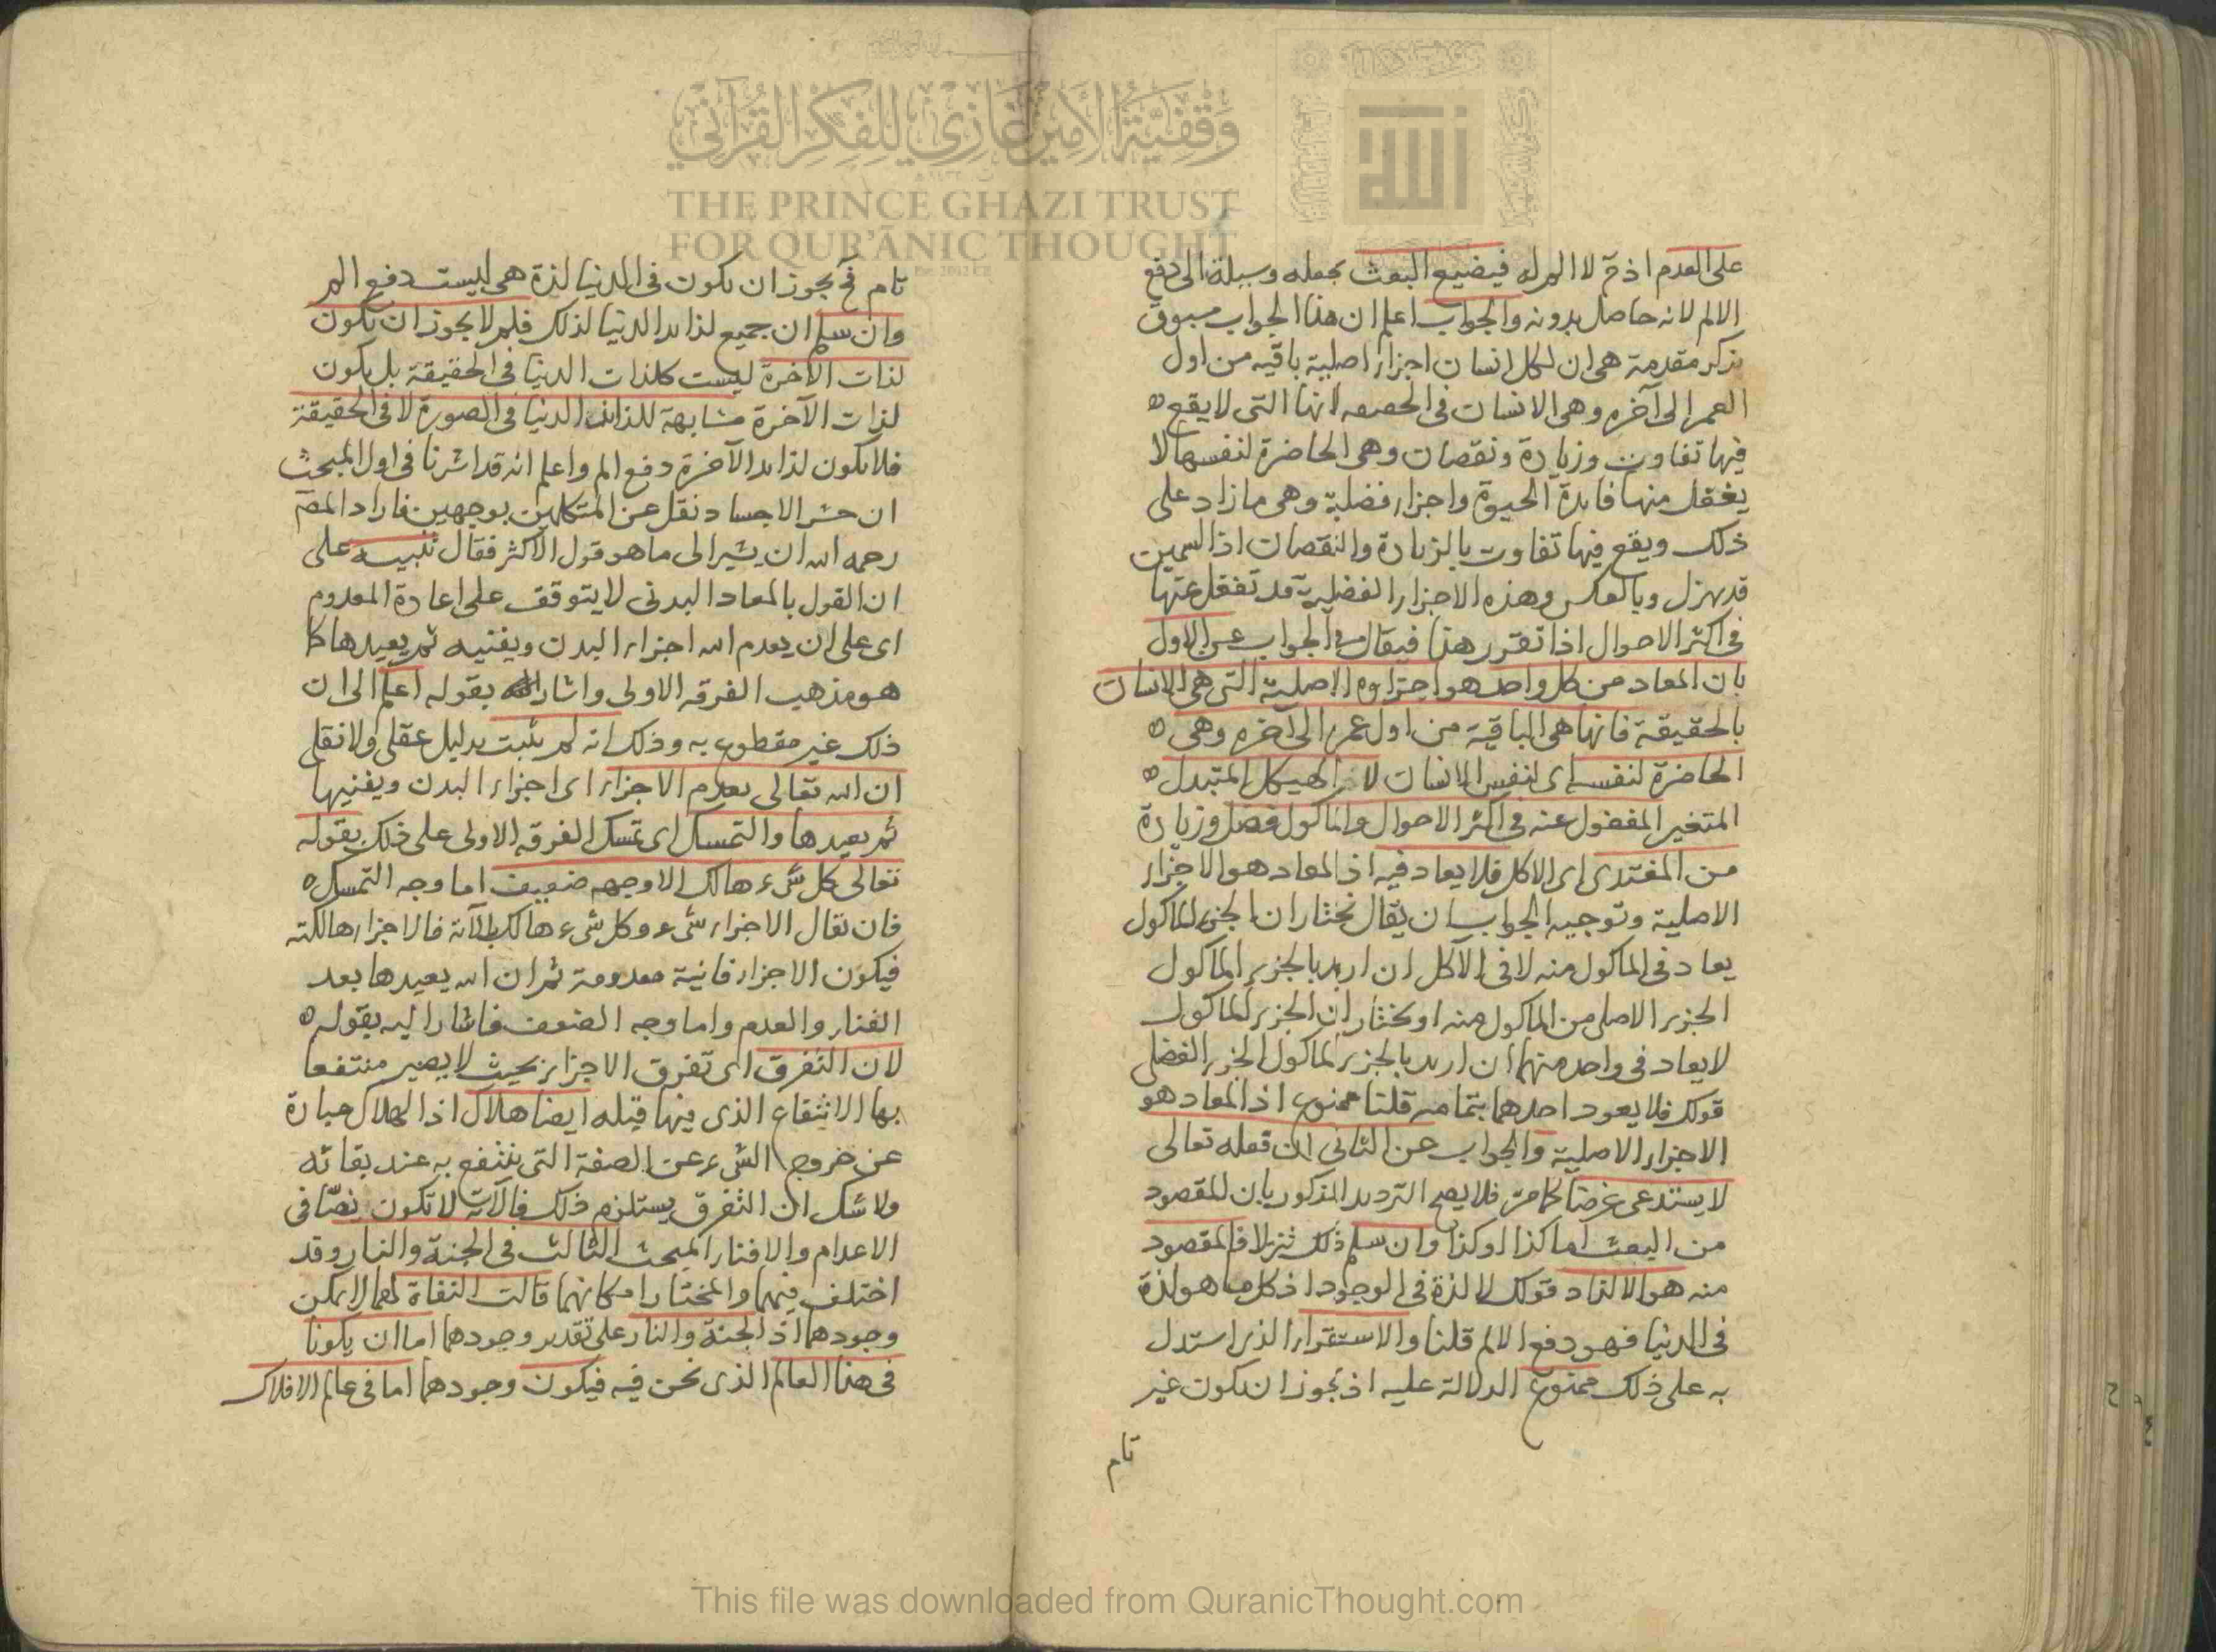 على العدم اذ ح لا الم له فيضيع البعث بجعله وسيلة الى دفع
الالم لانه حاصل بدونه والجواب اعلم ان هذا الجواب مسبوق
بذكر مقدمة هى ان لكل انسان اجزاء اصلية باقيه من اول
العمر الى آخره وهى الانسان فى الحقيقه لانها التى لا يقع
فيها تفاوت وزيادة ونقصان وهى الحاضرة لنفسها لا
يغفل منها فايدة الحيوة واجزاء فضلية وهى ما زاد على
ذلك ويقع فيها تفاوت بالزيادة والنقصان اذ السمين
قد يهزل وبالعكس وهذه الاجزاء الفضلية قد تغفل عنها
فى اكثر الاحوال اذا تقرر هذا فيقال فى الجواب عن الاول
بان المعاد من كل واحد هو اجزاوه الاصلية التى هى الانسان
بالحقيقة فانها هى الباقية من اول عمره الى آخره وهى
الحاضرة لنفسه اى لنفس الانسان لا الهيكل المتبدل
المتغير المغفول عنه فى اكثر الاحوال والماكول فضل وزيادة
من المغتدى اى الاكل فلا يعاد فيه اذ المعاد هو الاجزاء
الاصلية وتوجيه الجواب ان يقال نختار ان الجزء الماكول
يعاد فى الماكول منه لا فى الآكل ان اريد بالجزء الماكول
الجزء الاصلى من الماكول منه او نختار ان الجزء الماكول
لا يعاد فى واحد منهما ان اريد بالجزء الماكول الجزء الفضلى
قولك فلا يعود احدهما بتمامه قلنا ممنوع اذ المعاد هو
الاجزاء الاصلية والجواب عن الثانى ان فعله تعالى
لا يستدعى غرضا كما مر فلا يصح الترديد المذكور بان المقصود
من البعث اما كذا او كذا وان سلم ذلك تنزلا فالمقصود
منه هو الالتذاذ قولك لا لذة فى الوجود اذ كل ما هو لذة
فى الدنيا فهو دفع الالم قلنا والاستقراء الذى استدل
به على ذلك ممنوع الدلالة عليه اذ يجوز ان يكون غير
تام
تام فح يجوز ان يكون فى الدنيا لذة هى ليست دفع الم
وان سلم ان جميع لذايد الدنيا لذلك فلم لا يجوز ان يكون
لذات الآخرة ليست كلذات الدنيا فى الحقيقة بل يكون
لذات الآخرة مشابهة للذات الدنيا فى الصورة لا فى الحقيقة
فلا يكون لذايد الآخرة دفع الم واعلم انه قد اشرنا فى اول المبحث
ان حشر الاجساد نقل عن المتكلمين بوجهين فاراد المصَ
رحمه الله ان يشير الى ما هو قول الاكثر فقال تنبيه على
ان القول بالمعاد البدنى لا يتوقف على اعادة المعدوم
اى على ان يعدم الله اجزاء البدن ويفنيه ثم يعيدها كما
هو مذهب الفرقه الاولى واشار بقوله اعلم الى ان
ذلك غير مقطوع به وذلك انه لم يثبت بدليل عقلى ولا نقلى
ان الله تعالى يعدم الاجزاء اى اجزاء البدن ويفنيها
ثم يعيدها والتمسك اى تمسك الفرقه الاولى على ذلك بقوله
تعالى كل شىء هالك الا وجهه ضعيف اما وجه التمسك
فان يقال الاجزاء شىء وكل شىء هالك بالآية فالاجزاء هالكة
فيكون الاجزاء فانية معدومة ثم ان الله يعيدها بعد
الفناء والعدم واما وجه الضعف فاشار اليه بقوله
لان التفرق اى تفرق الاجزاء بحيث لا يصير منتفعا
بها الانتفاع الذى منها قبله ايضا هلاك اذ الهلاك عبارة
عن خروج الشىء عن الصفة التى ينتفع به عند بقائه
ولا شك ان التفرق يستلزم ذلك فالآية لا تكون نصّا فى
الاعدام والافناء المبحث الثالث فى الجنة والنار وقد
اختلف فيهما والمختار امكانهما قالت النفاة لهما لا يمكن
وجودهما اذ الجنة والنار على تقدير وجودهما اما ان يكونا
فى هذا العالم الذى نحن فيه فيكون وجودهما اما فى عالم الافلاك
وقفية الأمير غازي للفكر القرآني
THE PRINCE GHAZI TRUST
FOR QUR'ĀNIC THOUGHT
الله
This file was downloaded from QuranicThought.com